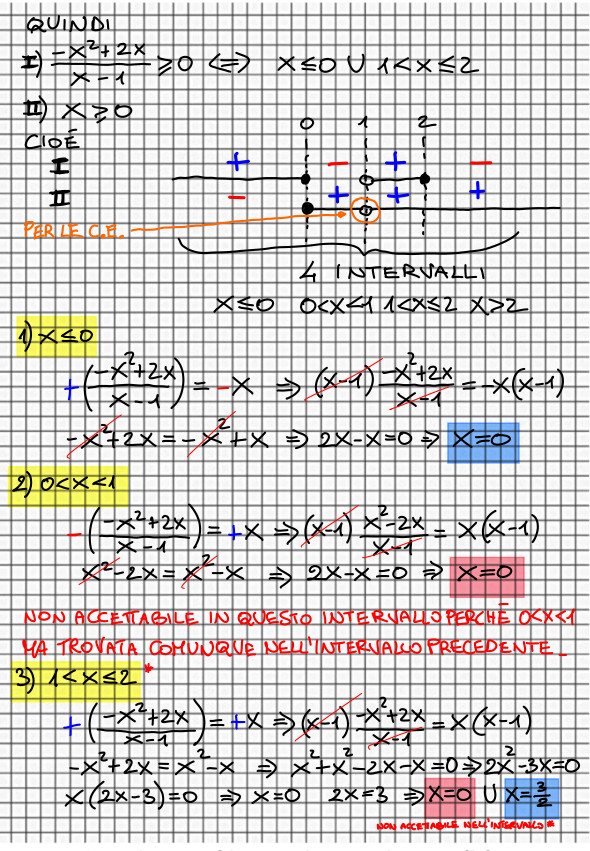 QUINDI
I) (-x²+2x)/(x-1) ≥ 0 ⟺ x≤0 ∪ 1<x≤2
II) x≥0
CIOÈ
0 1 2
I + - + -
II - + + +
PER LE C.E.
4 INTERVALLI
x≤0 0<x<1 1<x≤2 x>2
1) x≤0
+((-x²+2x)/(x-1)) = -x ⇒ (x-1) (-x²+2x)/(x-1) = -x(x-1)
-x²+2x = -x²+x ⇒ 2x-x=0 ⇒ x=0
2) 0<x<1
-((-x²+2x)/(x-1)) = +x ⇒ (x-1) (x²-2x)/(x-1) = x(x-1)
x²-2x = x²-x ⇒ 2x-x=0 ⇒ x=0
NON ACCETTABILE IN QUESTO INTERVALLO PERCHÉ 0<x<1
MA TROVATA COMUNQUE NELL'INTERVALLO PRECEDENTE_
3) 1<x≤2 *
+((-x²+2x)/(x-1)) = +x ⇒ (x-1) (-x²+2x)/(x-1) = x(x-1)
-x²+2x = x²-x ⇒ x²+x²-2x-x=0 ⇒ 2x²-3x=0
x(2x-3)=0 ⇒ x=0 2x=3 ⇒ x=0 ∪ x=3/2
NON ACCETTABILE NELL'INTERVALLO *